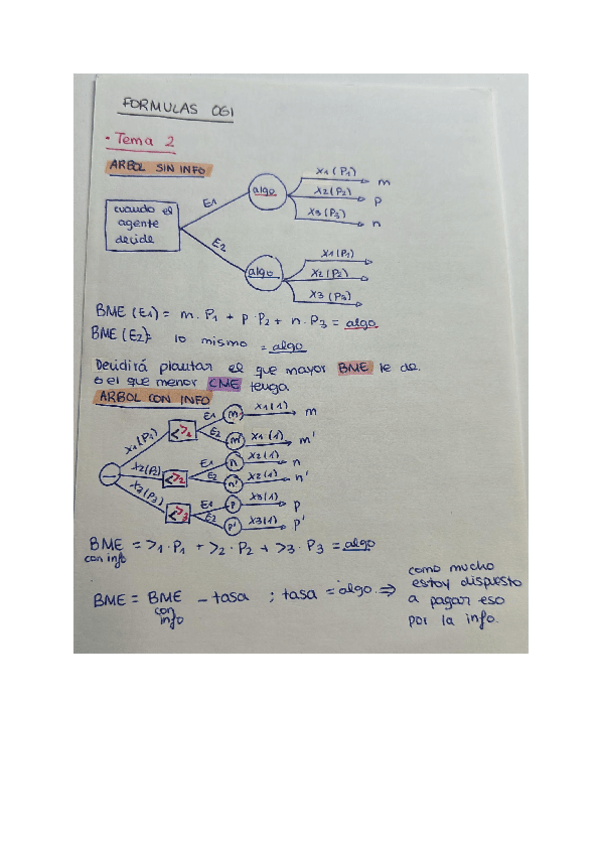 FORMULAS OGI
• Tema 2
ARBOL SIN INFO
cuando el
agente
decide
E1
E2
algo
X1 (P1)
m
X2 (P2)
P
X3 (P3)
n
algo
X1 (P1)
X2 (P2)
X3 (P3)
BME (E1) = m · P1 + p · P2 + n · P3 = algo
BME (E2): lo mismo = algo
Decidirá plantar el que mayor BME le de.
o el que menor CME tenga.
ARBOL CON INFO
X1 (P1)
X2 (P2)
X3 (P3)
<>1
E1
m
X1 (1)
m
E2
m'
X1 (1)
m'
<>2
E1
n
X2 (1)
n
E2
n'
X2 (1)
n'
<>3
E1
P
X3 (1)
P
E2
P'
X3 (1)
P'
BME = >1 · P1 + >2 · P2 + >3 · P3 = algo
con info
BME = BME - tasa ; tasa = algo. ⇒
con
info
como mucho
estoy dispuesto
a pagar eso
por la info.